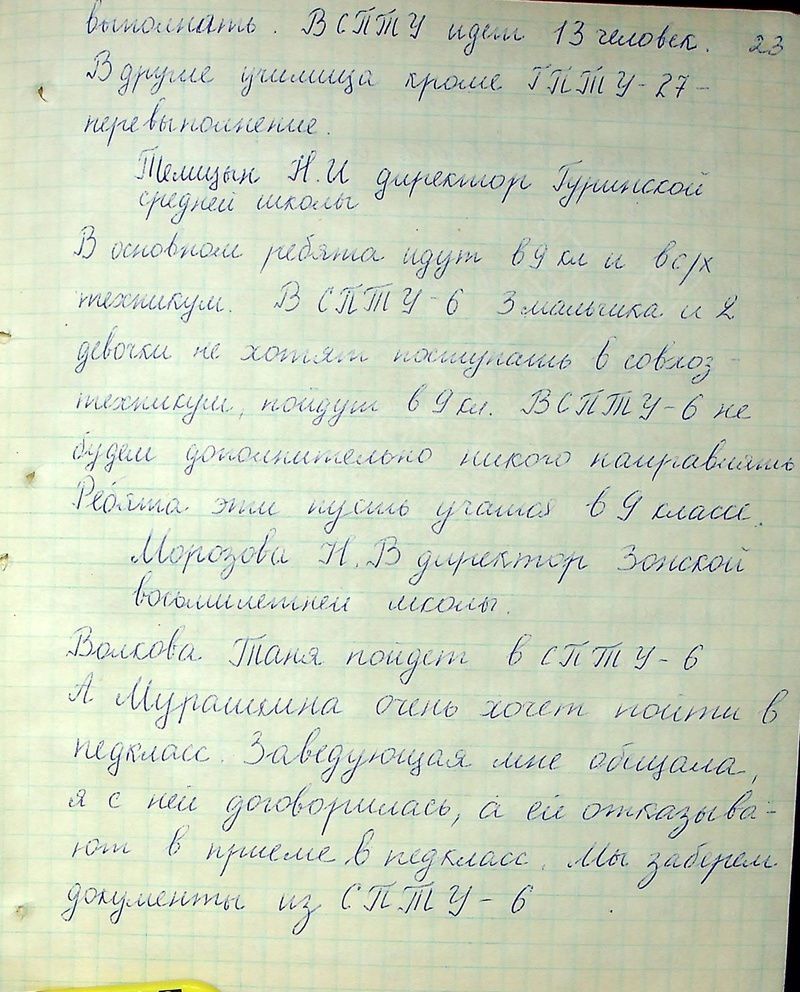 выполнять. В СПТУ идет 13 человек. 23
В другие училища кроме ГПТУ-27 -
перевыполнение.
Телицын Н.И директор Гуринской
средней школы
В основном ребята идут в 9 кл и в с/х
техникум. В СПТУ-6 3 мальчика и 2
девочки не хотят поступать в совхоз-
техникум, пойдут в 9 кл. В СПТУ-6 не
будем дополнительно никого направлять
Ребята эти пусть учатся в 9 классе.
Морозова Н.В директор Зонской
восьмилетней школы.
Волкова Таня пойдет в СПТУ-6
А Мурашкина очень хочет пойти в
педкласс. Заведующая мне обещала,
я с ней договорилась, а ей отказыва-
ют в приеме в педкласс. Мы заберем
документы из СПТУ-6